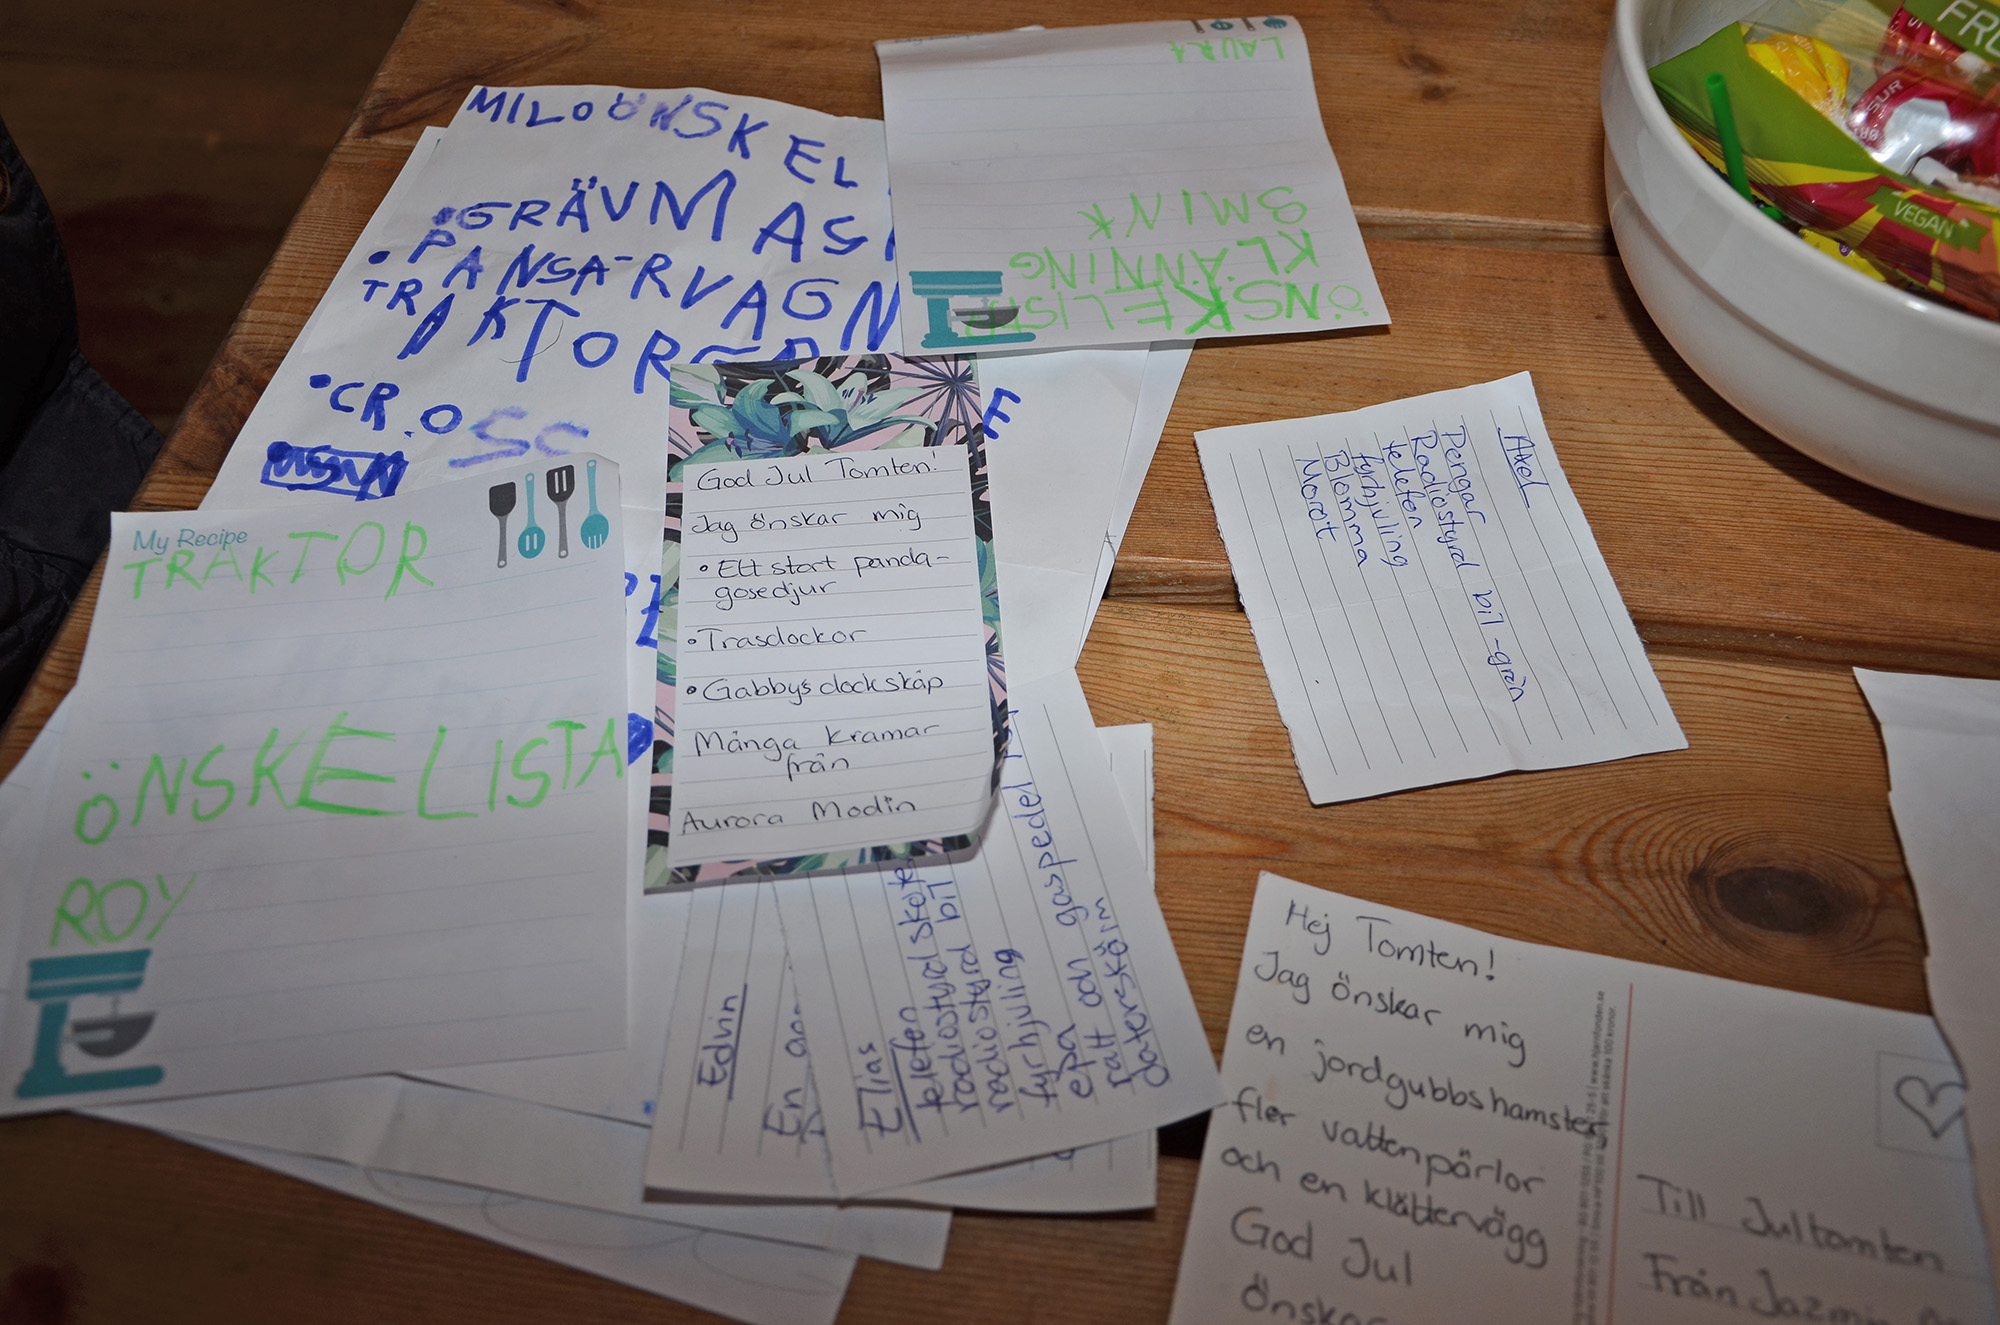 MILO ÖNSKEL
GRÄVMAS
PANSARVAGN
TRAKTOR
CROSS
LAURA
SMINK
KLÄNNING
ÖNSKELISTA
My Recipe
TRAKTOR
ÖNSKELISTA
ROY
God Jul Tomten!
Jag önskar mig
• Ett stort panda-
gosedjur
• Trasdockor
• Gabbys dockskåp
Många kramar
från
Aurora Modin
Axel
Pengar
Radiostyrd bil - grön
telefon
fyrhjuling
Blomma
Morot
Edvin
En
Elias
telefon
radiostyrd skoter
radiostyrd bil
fyrhjuling
epa
ratt och gaspedal
datorskärm
Hej Tomten!
Jag önskar mig
en jordgubbshamster
fler vattenpärlor
och en klättervägg
God Jul
önskar
Till Jultomten
Från Jazmin
FRU
SUR
VEGAN